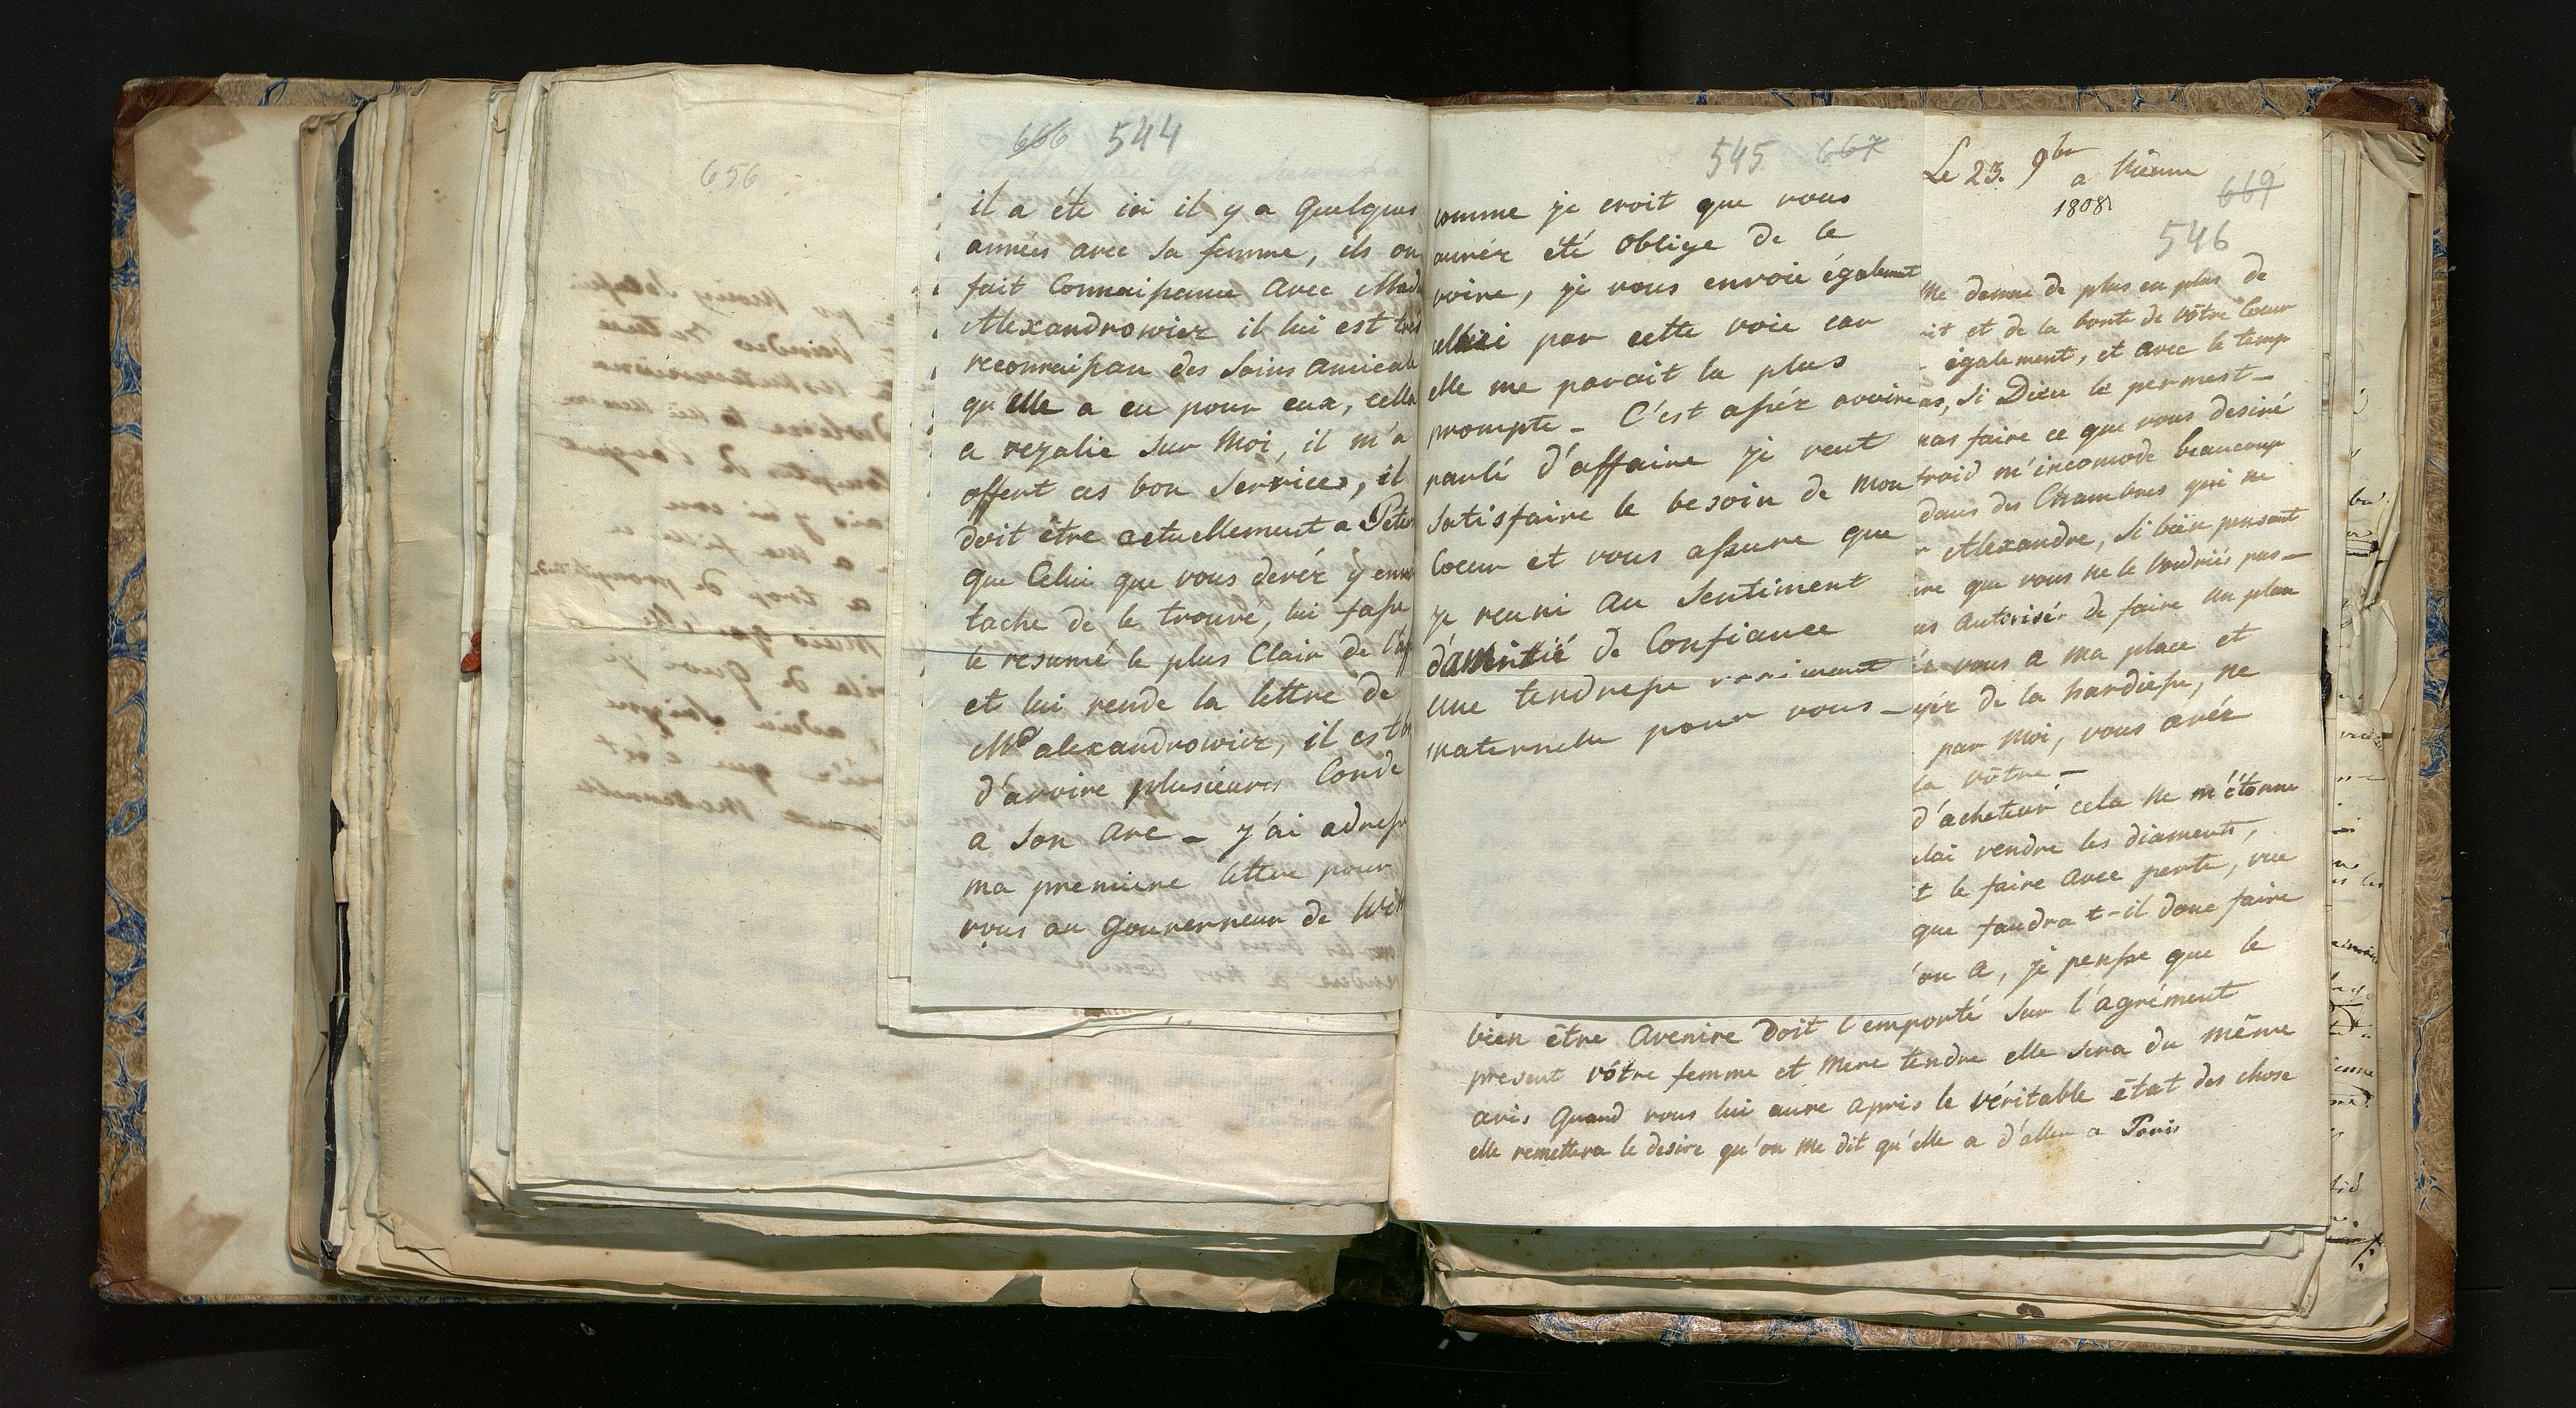 656
666 544
il a été ici il y a Quelques
années avec sa femme, ils on
fait Connaissance avec Mad
Alexandrowicz il lui est tres
reconnaissan des soins amicale
qu'elle a eu pour eux, cella
a rejalie sur Moi, il m'a
offert ces bon Services, il
doit être actuellement a Peters
que Celui que vous devéz y
tache de le trouvé, lui fasse
le resumé le plus Clair de l'aff
et lui rende la lettre de
Md alexandrowicz, il est
d'avoire plusieurs Corde
a son arc - j'ai adress
ma premiere lettre pour
vous au Gouverneur de
545 667
comme je croit que vous
auréz été obligé de le
voire, je vous envoie également
celleici par cette voie car
elle me parait la plus
prompte - C'est asséz avoire
parlé d'affaire je veut
satisfaire le besoin de mon
Coeur et vous assure que
je reuni au Sentiment
d'amitié de Confiance
une tendresse vraiment
maternelle pour vous -
Le 23. 9bre a Vienne
1808
669
546
me donne de plus en plus de
et de la bonté de vôtre Coeur
également, et avec le temp
as, si Dieu le permest -
pas faire ce que vous desiré
froid m'incomode beaucoup
dans des Chambres qui ne
Alexandre, si bien pensent
que vous ne le voudriés pas -
as autorisér de faire un plan
vous a ma place et
de la hardiesse, ne
par moi, vous avéz
la vôtre -
d'acheteur cela ne m'étonne
vendre les diaments,
t le faire avec perte, vue
que faudra t-il donc faire
on a, je pensse que le
bien être avenire doit l'emporté sur l'agrément
present vôtre femme et mere tendre elle sera du même
avis Quand vous lui aure apris le véritable état des chose
elle remettera le desire qu'on me dit qu'elle a d'aller a Paris